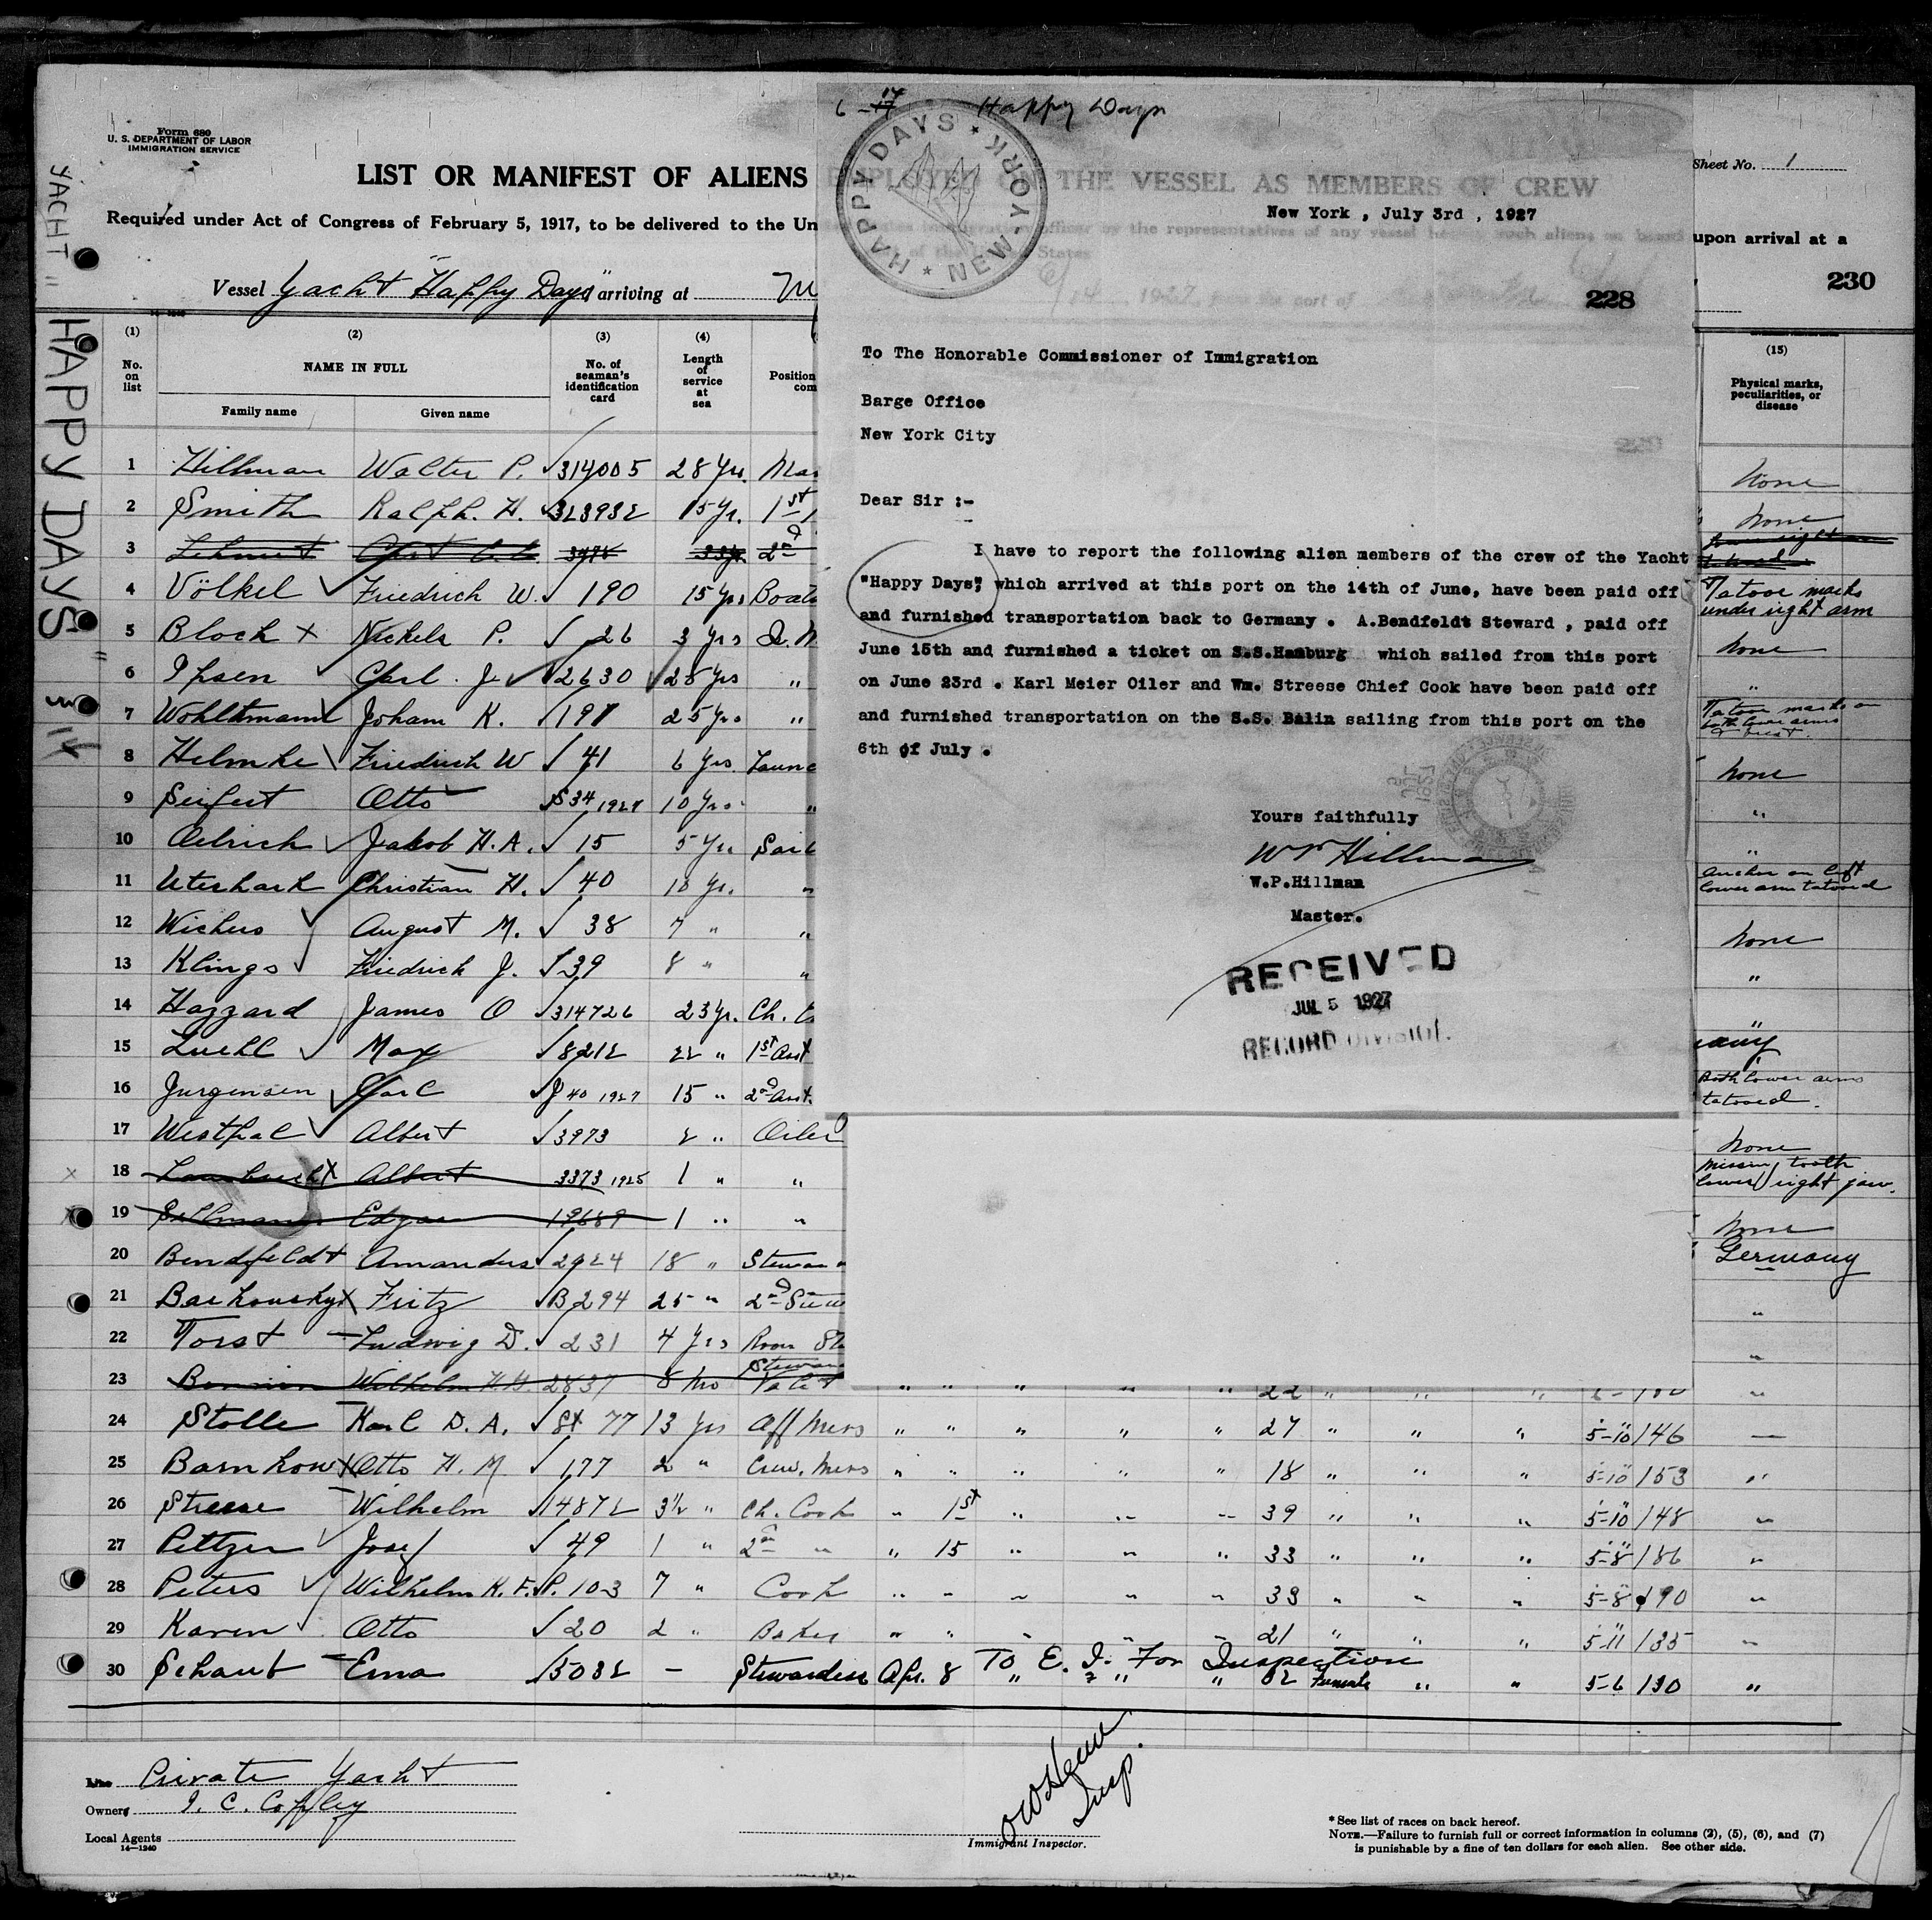 Form 680
U. S. DEPARTMENT OF LABOR
IMMIGRATION SERVICE
LIST OR MANIFEST OF ALIENS EMPLOYED ON THE VESSEL AS MEMBERS OF CREW
Sheet No. 1
Required under Act of Congress of February 5, 1917, to be delivered to the Un
upon arrival at a
230
Vessel Yacht "Happy Days" arriving at
YACHT "HAPPY DAYS"
(1) (2) (3) (4) (15)
No. on list
NAME IN FULL
Family name Given name
No. of seaman's identification card
Length of service at sea
Position
com
Physical marks, peculiarities, or disease
1 Hillman Walter P. 314005 28 Yrs. Mas None
2 Smith Ralph. H. 323932 15 Yr. 1st None
3 2nd
4 Völkel Friedrich W. 190 15 Yrs Boats Tatoor marks under right arm
5 Bloch x Nickels P. 26 3 Yrs None
6 Ipsen Carl. J. 2630 25 Yrs " "
7 Wohltmann Joham K. 197 25 Yrs " Tatoor marks on both lower arms
8 Helmke Friedrich W 41 6 Yrs. Launc None
9 Seifert Otto S34 1927 10 Yrs. " "
10 Oelrich Jakob H. A. 15 5 Yrs Sail "
11 Uterhark Christian H. 40 10 Yr. " Anchor on left lower arm tatooed
12 Wichers August M. 38 7 " " None
13 Klings Friedrich J. 39 8 " " "
14 Hazzard James O 314726 23 Yr. Ch. "
15 Luehl Max 8212 22 " 1st Asst
16 Jurgensen Carl J 40 1927 15 " 2nd Asst. Both lower arms tatooed.
17 Westphal Albert 3973 2 " Oiler None
18 Albert 3373 1925 1 " " Missing tooth lower right jaw.
19 Edgar 19689 1 " " None
20 Bendfeldt Amandus 2924 18 " Steward Germany
21 Barkowsky x Fritz B294 25 " 2nd Stew "
22 Torst Ludwig D. 231 4 Yrs Room St "
23 Wilhelm H. 2837 8 Mo Valet " " " " " 22 " " " "
24 Stolle Karl D. A. St 77 13 Yrs Off Mess " " " " " 27 " " " 5-10 146 —
25 Barnkow x Otto H. M 177 2 " Crew. Mess " " " " " 18 " " " 5-10 153 "
26 Streese Wilhelm 14872 3½ " Ch. Cook " 1st " " " 39 " " " 5-10 148 "
27 Peltzer Josef 49 1 " 2nd " " 15 " " " 33 " " " 5-8 186 "
28 Peters Wilhelm K. F. P. 103 7 " Cook " " " " " 33 " " " 5-8 190 "
29 Karen Otto 20 2 " Baker " " " " " 21 " " " 5-11 135 "
To E. I. For Inspection
30 Schaut Erna 15032 — Stewardess Apr. 8 " " " 32 Female " " 5-6 130 "
Private Yacht
Owners I. C. Copley
Local Agents
14—1240
Insp.
Immigrant Inspector.
* See list of races on back hereof.
NOTE.—Failure to furnish full or correct information in columns (2), (5), (6), and (7)
is punishable by a fine of ten dollars for each alien. See other side.
6-14 Happy Days
HAPPY DAYS ★ NEW-YORK ★
New York , July 3rd , 1927
228
To The Honorable Commissioner of Immigration
Barge Office
New York City
Dear Sir :-
I have to report the following alien members of the crew of the Yacht
"Happy Days", which arrived at this port on the 14th of June, have been paid off
and furnished transportation back to Germany . A.Bendfeldt Steward , paid off
June 15th and furnished a ticket on S.S.Hamburg which sailed from this port
on June 23rd . Karl Meier Oiler and Wm. Streese Chief Cook have been paid off
and furnished transportation on the S.S. Balin sailing from this port on the
6th of July .
Yours faithfully
W P Hillman
W.P.Hillman
Master.
RECEIVED
JUL 5 1927
RECORD DIVISION.